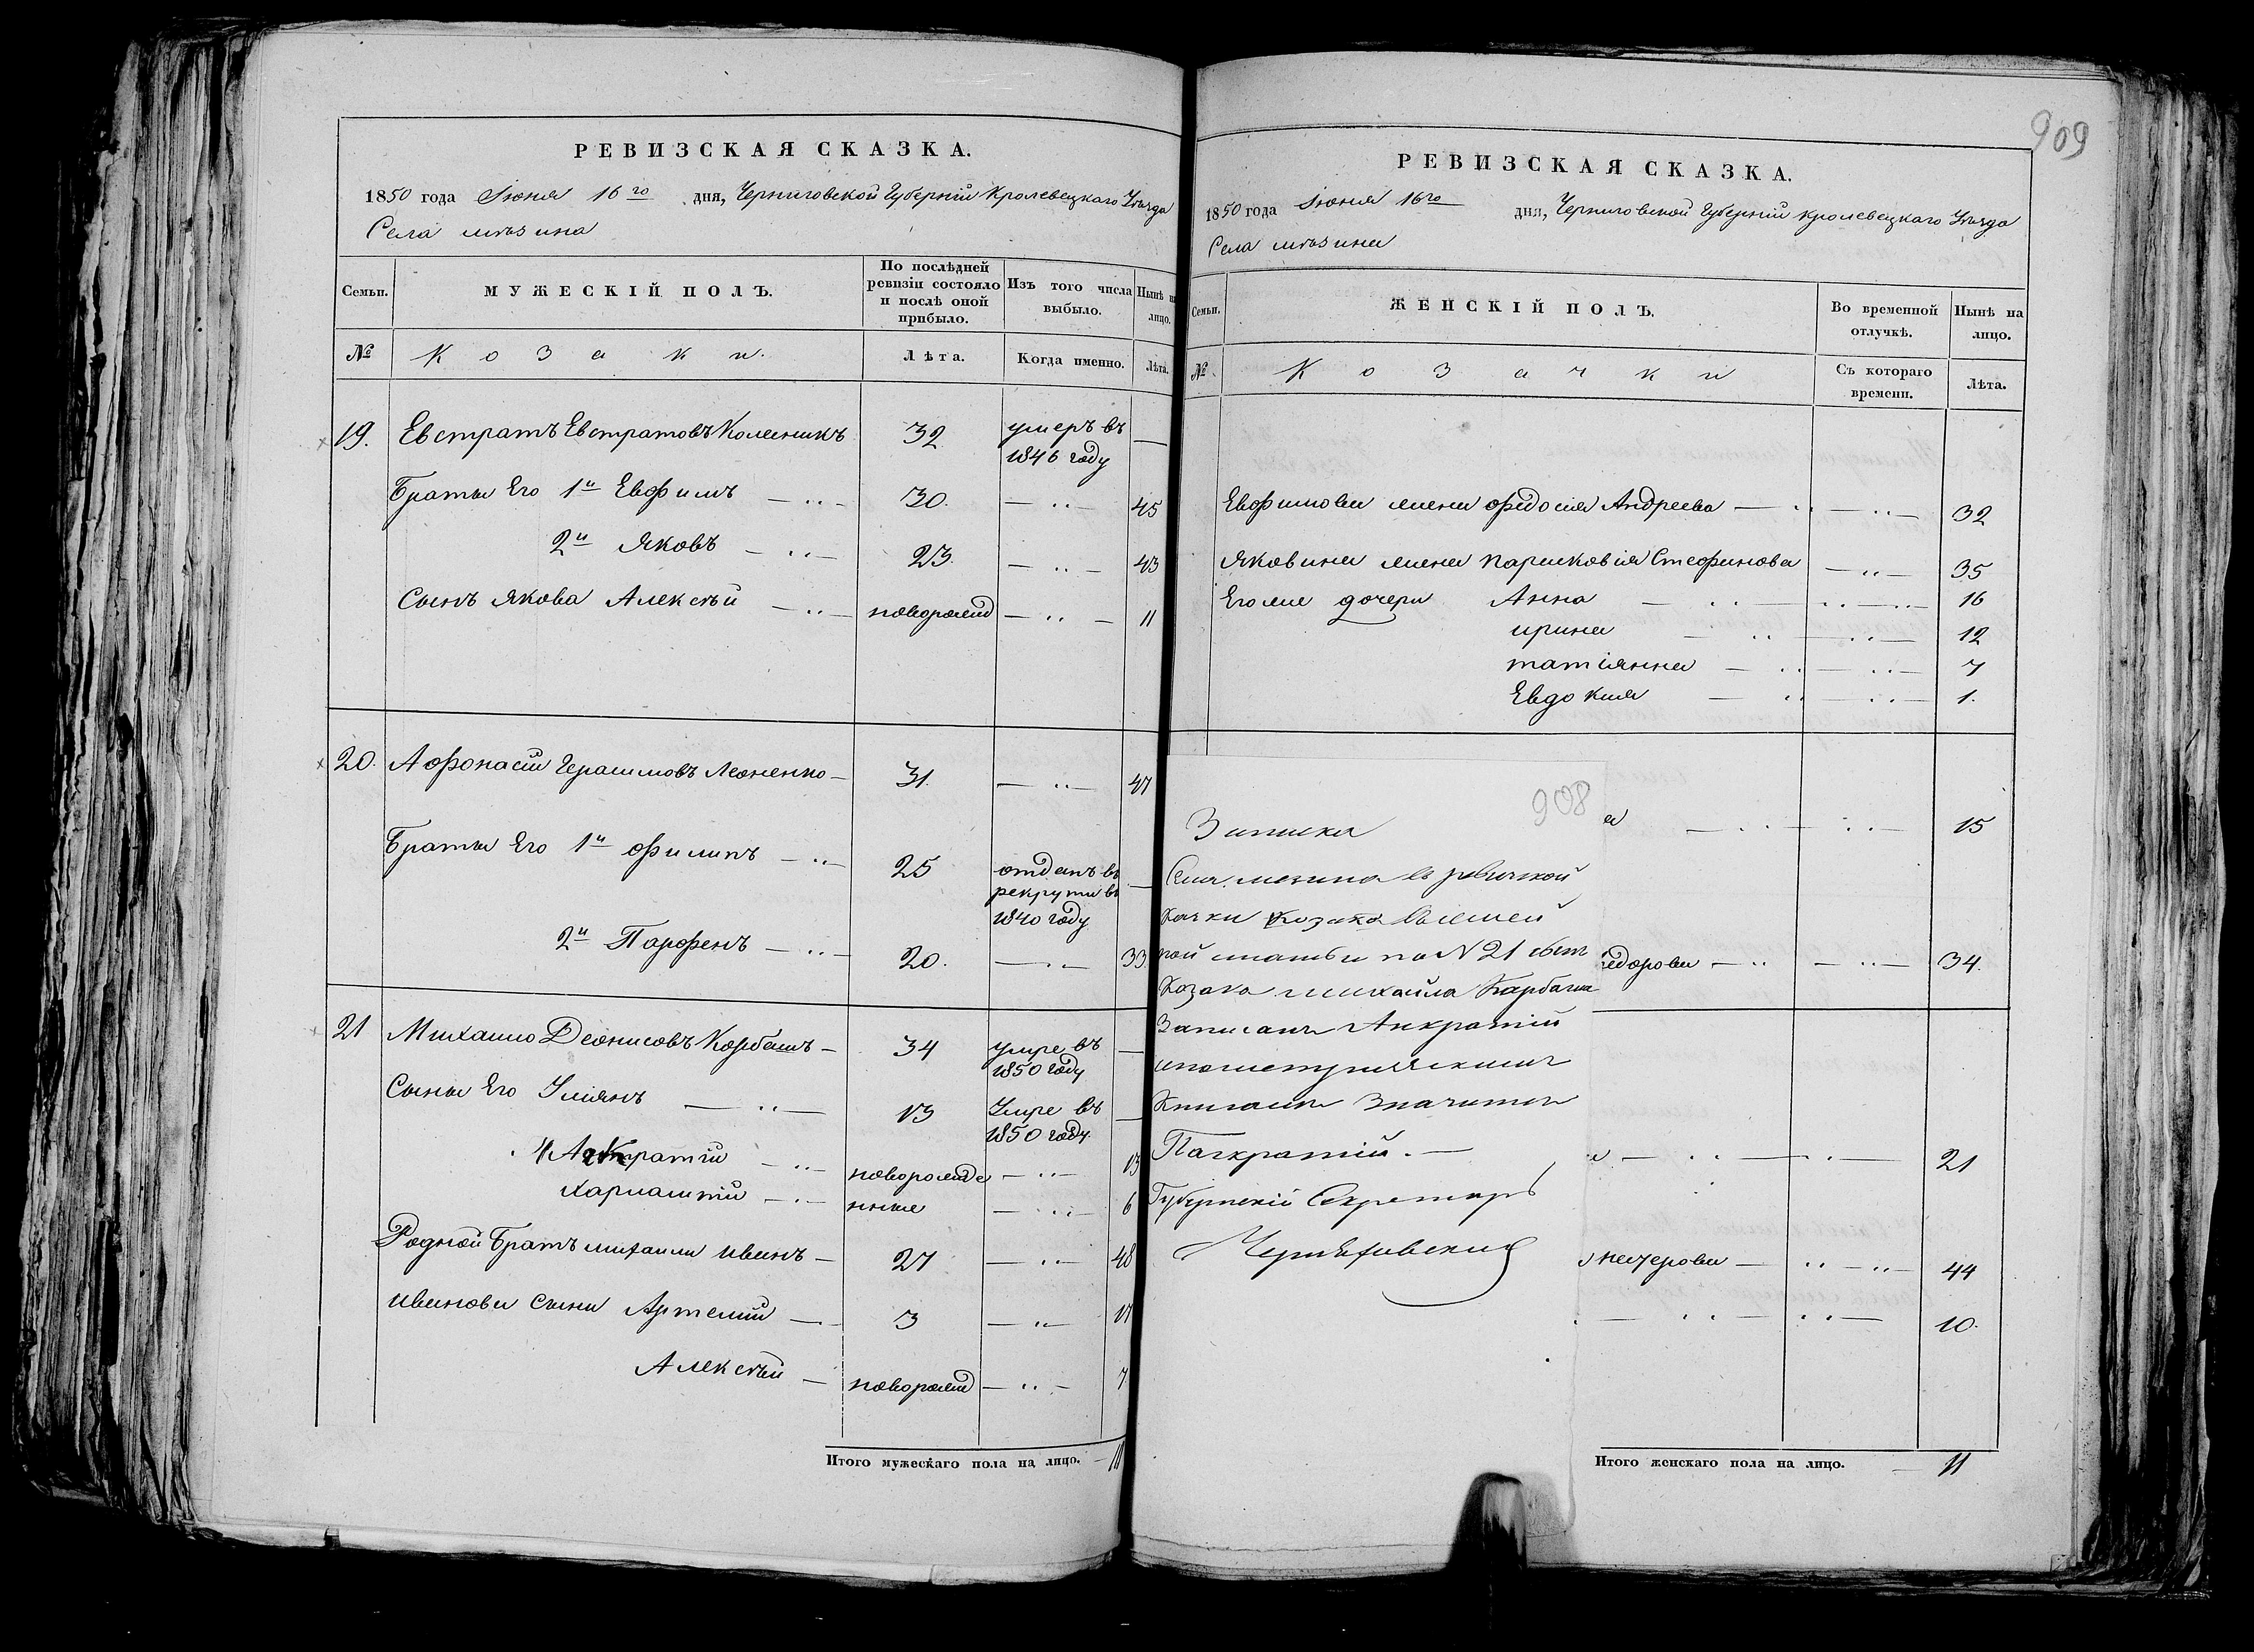 РЕВИЗСКАЯ СКАЗКА.
1850 года Июня 16го дня, Черниговской Губерніи Кролевецкаго Уезда
Села Мѣзина
Семьи. МУЖЕСКІЙ ПОЛЪ. По послѣдней ревизіи состояло и послѣ оной прибыло. Изъ того числа выбыло. Нынѣ на лицо.
№ Козаки. Лѣта. Когда именно. Лѣта.
19. Евстратъ Евстратовъ Колесникъ 32 умеръ въ 1846 году —
Браты Его 1й Евфимъ — „ — 30. — „ — 45
2й Яковъ — „ — 23. — „ — 43
Сынъ Якова Алексѣй — „ — новорожд — „ — 11
20. Афонасій Герасимовъ Леоненко — 31. — „ — 47
Браты Его 1й Филипъ — „ — 25 отданъ въ рекруты въ 1840 году —
2й Парфенъ — „ — 20. — „ — 33.
21 Михаило Деонисовъ Корбашъ — 34 умре въ 1850 году —
Сыны Его Уліянъ — „ — 13 Умре въ 1850 году. —
Анкратій — „ — новорожде — „ — 13
Харлантій — „ — нные — „ — 6
Родной Братъ Михаила Иванъ — 27 — „ — 48
Ивановы сыны Артемій — 3 — „ — 17
Алексѣй — новорожд — „ — 7
Итого мужескаго пола на лицо. — 11
909
РЕВИЗСКАЯ СКАЗКА.
1850 года Июня 16го дня, Черниговской Губерніи Кролевецкаго Уезда
Села Мѣзина
Семьи. ЖЕНСКІЙ ПОЛЪ. Во временной отлучкѣ. Нынѣ на лицо.
№ Козачки Съ котораго времени. Лѣта.
Евфимова жена Федосія Андреева — „ — „ — 32
Яковина жена Парасковія Стефанова — „ — 35
Его же дочери Анна — „ — „ — 16
Ирина — „ — „ — 12
Татіянна — „ — „ — 7
Евдокия — „ — „ — 1.
а — „ — „ — 15
едорова — „ — „ — 34.
а — „ — „ — 21
нечерова — „ — „ — 44
— „ — „ — 10.
Итого женскаго пола на лицо. — 11
908
Записка
Села Мезина въ ревизской
Сказки Козака
по № 21 сын
Козака Михаила Карбаша
Записанъ Анкратій
Книгами Значится
Панкратій. —
Губернскій Секретарь